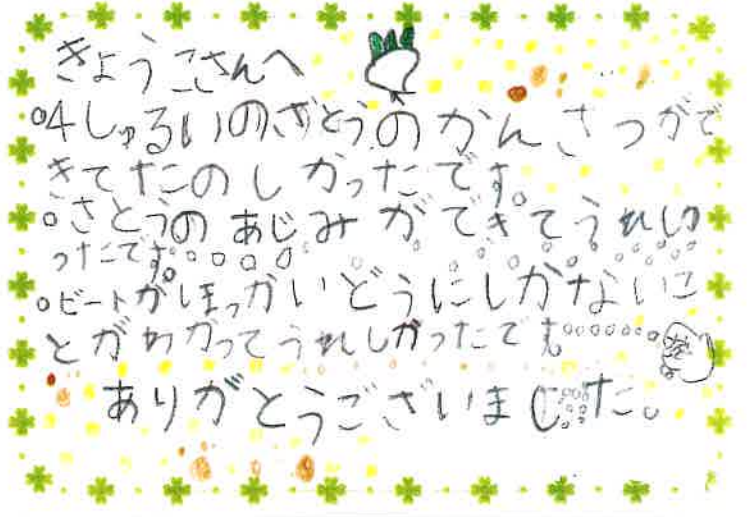 きょうこさんへ
○4しゅるいのざとうのかんさつがで
きてたのしかったです。
○さとうのあじみができてうれしか
ったです。
○ビートがほっかいどうにしかないこ
とがわかってうれしかったです
ありがとうございました。